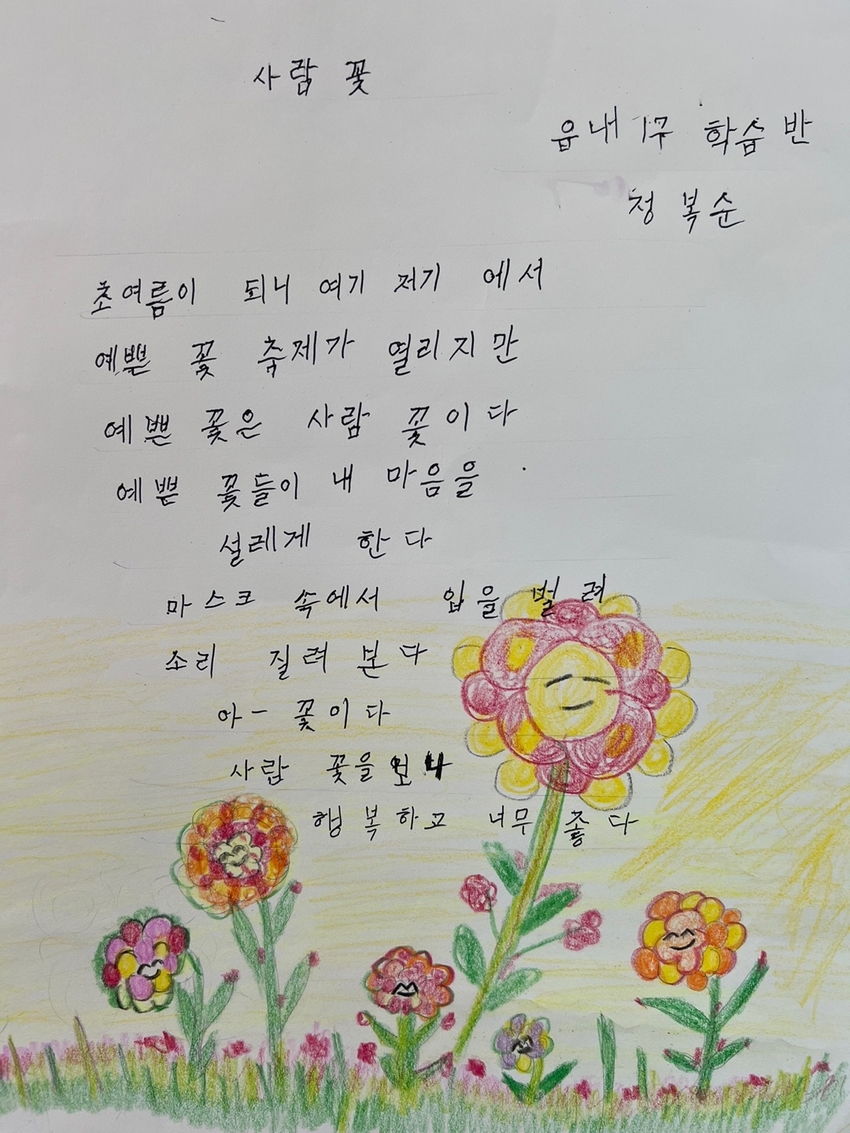 사람 꽃
읍내 1구 학습반
정 복순
초여름이 되니 여기 저기 에서
예쁜 꽃 축제가 열리지만
예쁜 꽃은 사람 꽃이다
예쁜 꽃들이 내 마음을
설레게 한다
마스크 속에서 입을 벌려
소리 질려 본다
아- 꽃이다
사람 꽃을 보니
행복하고 너무 좋다